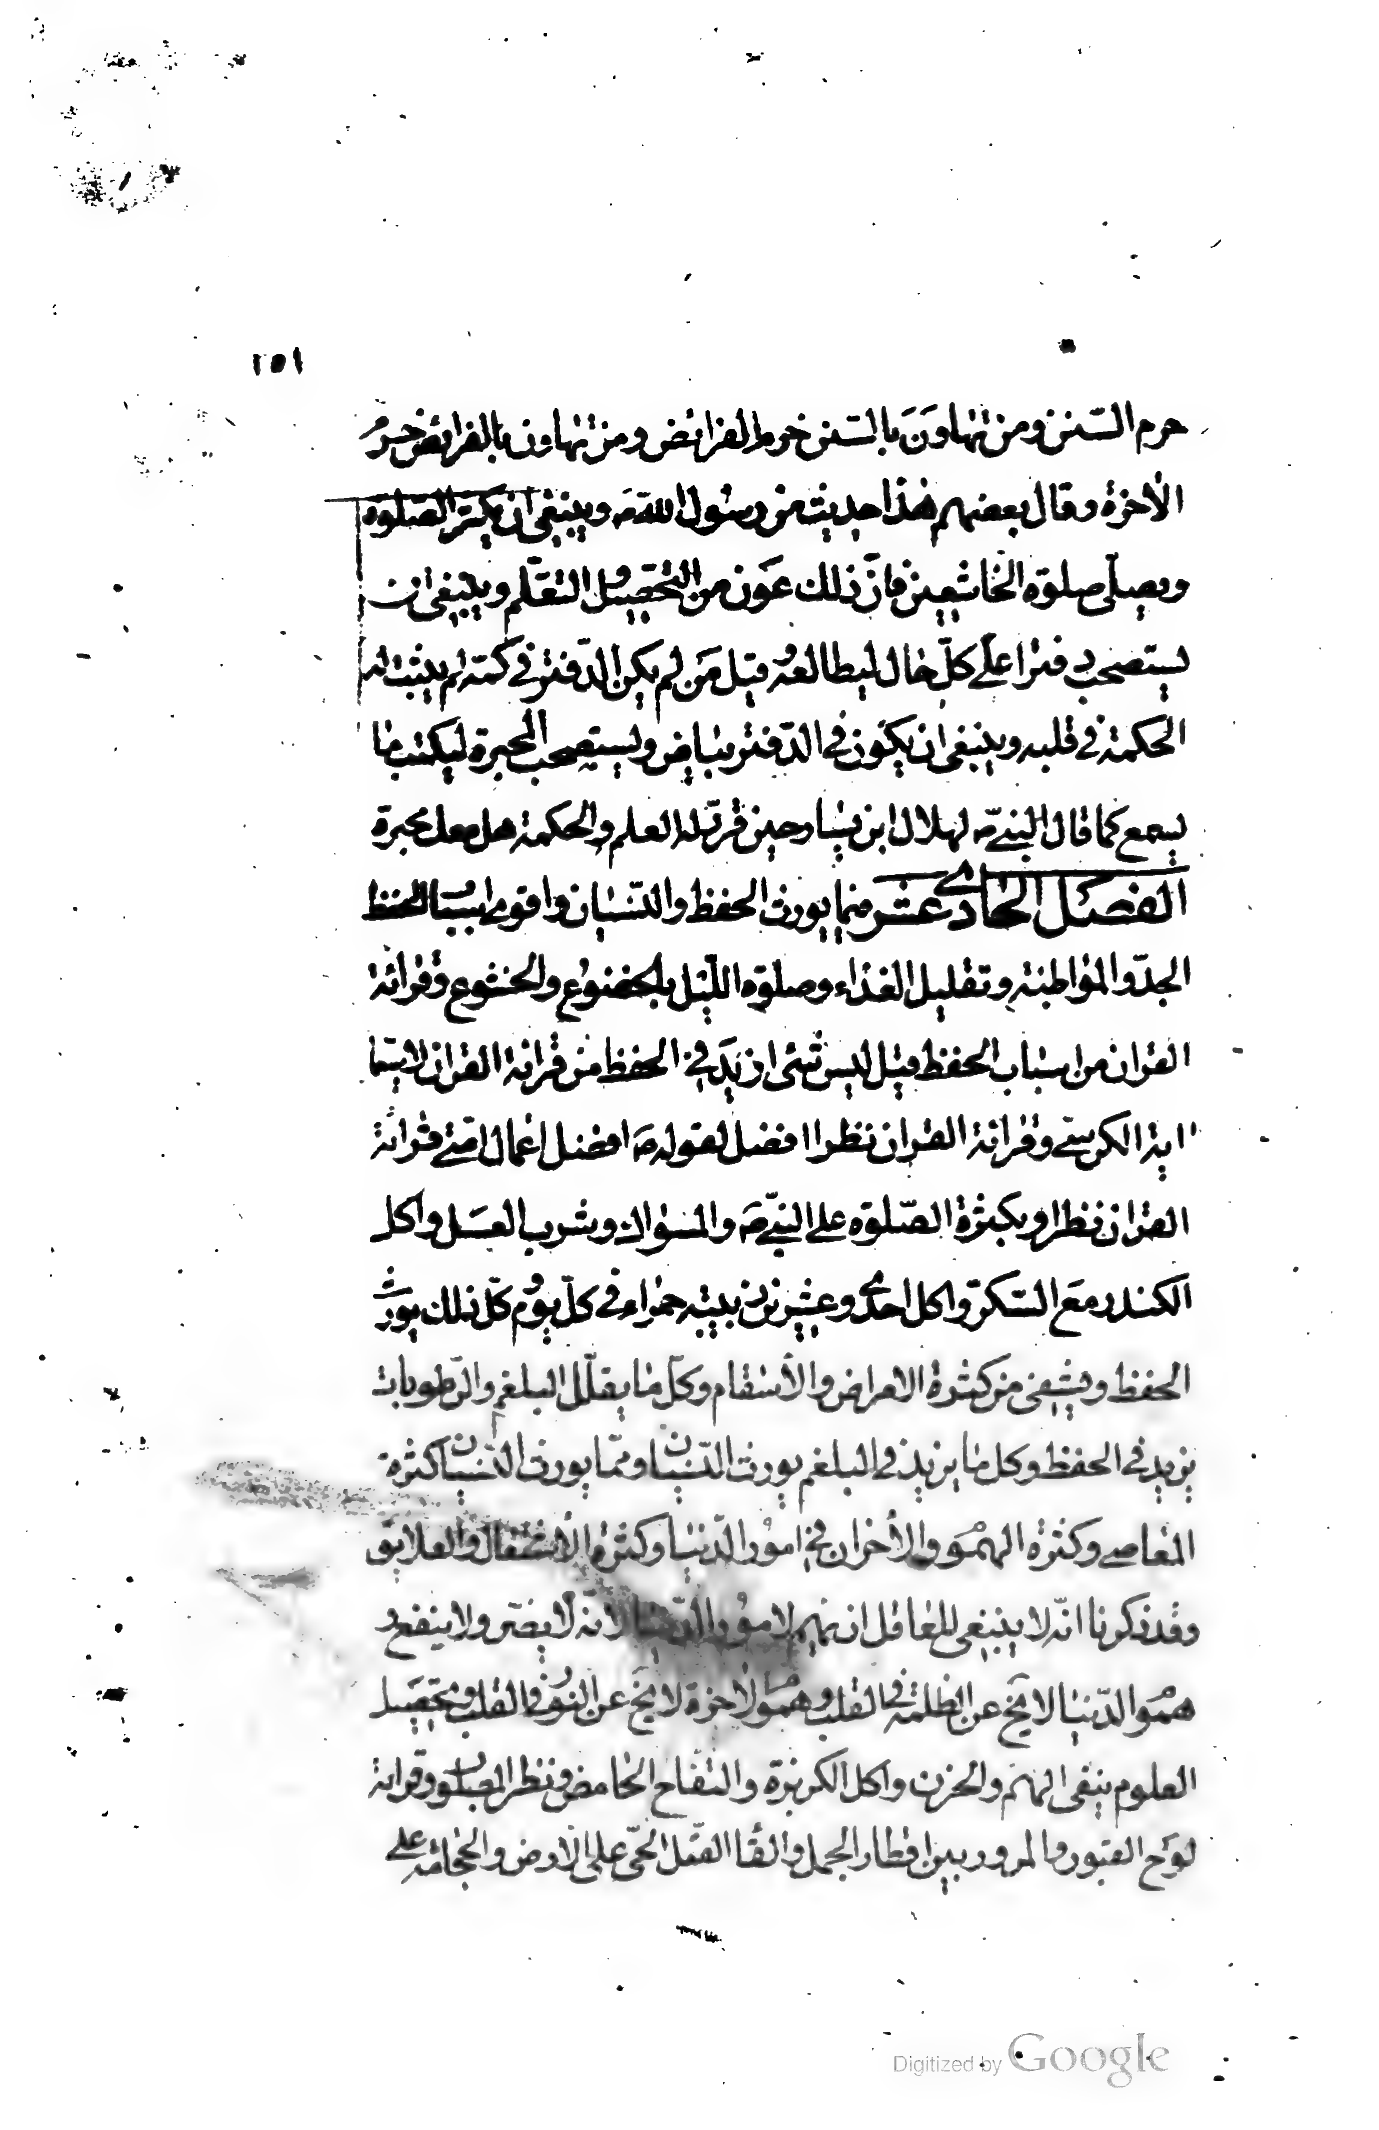 ١٥١
حرم السّنن ومن تهاوَنَ بالسّنن حرم الفرائض ومن تهاون بالفرائض حرم
الأخرة وقال بعضهم هذا حديث من رسُول اللّه صَ وينبغى ان يكثر الصّلوة
ويصلّى صلوة الخاشعين فانّ ذلك عَون من التّحصيل والتعَلّم وينبغى ان
يستصحب دفترا على كلّ حال ليطالعهُ قيل مَن لم يكن الدّفتر فى كمّه لم يثبت
الحكمة فى قلبه وينبغى ان يكون فى الدّفتر بياض ويستصحب المحبرة ليكتب ما
يسمع كما قال النبىّ صَ لهلال ابن يسار حين قرّر له العلم والحكمة هل معك محبرة
الفصل الحادى عشر فيما يورث الحفظ والنّسيان واقوى اسباب الحفظ
الجدّ والمواظبة وتقليل الغذاء وصلوة اللّيل بالخضوع والخشوع وقرائة
القران من اسباب الحفظ قيل ليس شئ ازيَد فى الحفظ من قرائة القران لاسيّما
اية الكرسى وقرائة القران نظرا افضل لقوله صَ افضل اعمال امّتى قرائة
القران نظرا ويكثرة الصّلوة على النبىّ صَ والمسواك وشرب العسَل واكل
الكندر مَع السّكر واكل احدى وعشرين زبيبة حمراء فى كلّ يوم كلّ ذلك يورث
الحفظ ويشفى من كثيرة الامراض والأسقام وكلّ ما يقلّل البلغم والرّطوبات
يزيد فى الحفظ وكل ما يزيد فى البلغم يورث النّسيان وممّا يورث النّسيان كثرة
المعاصى وكثرة الهموم والأحزان فى امور الدّنيا وكثرة الأشتغال والعلايق
وقد ذكرنا انّه لا ينبغى للعاقل ان يهم لامور الدّنيا لانّه لا يضرّ ولا ينفع و
هموم الدّنيا لا يخ عن الظلمة فى القلب وهموم الأخرة لا يخ عن النور فى القلب وتحصيل
العلوم ينفى الهم والحزن واكل الكزبرة والتفاح الحامض ونظر المصلوب وقراية
لوح القبور والمرور بين اقطار الجمل والقاا القمّل الحىّ على الارض والحجامة على
Digitized by Google